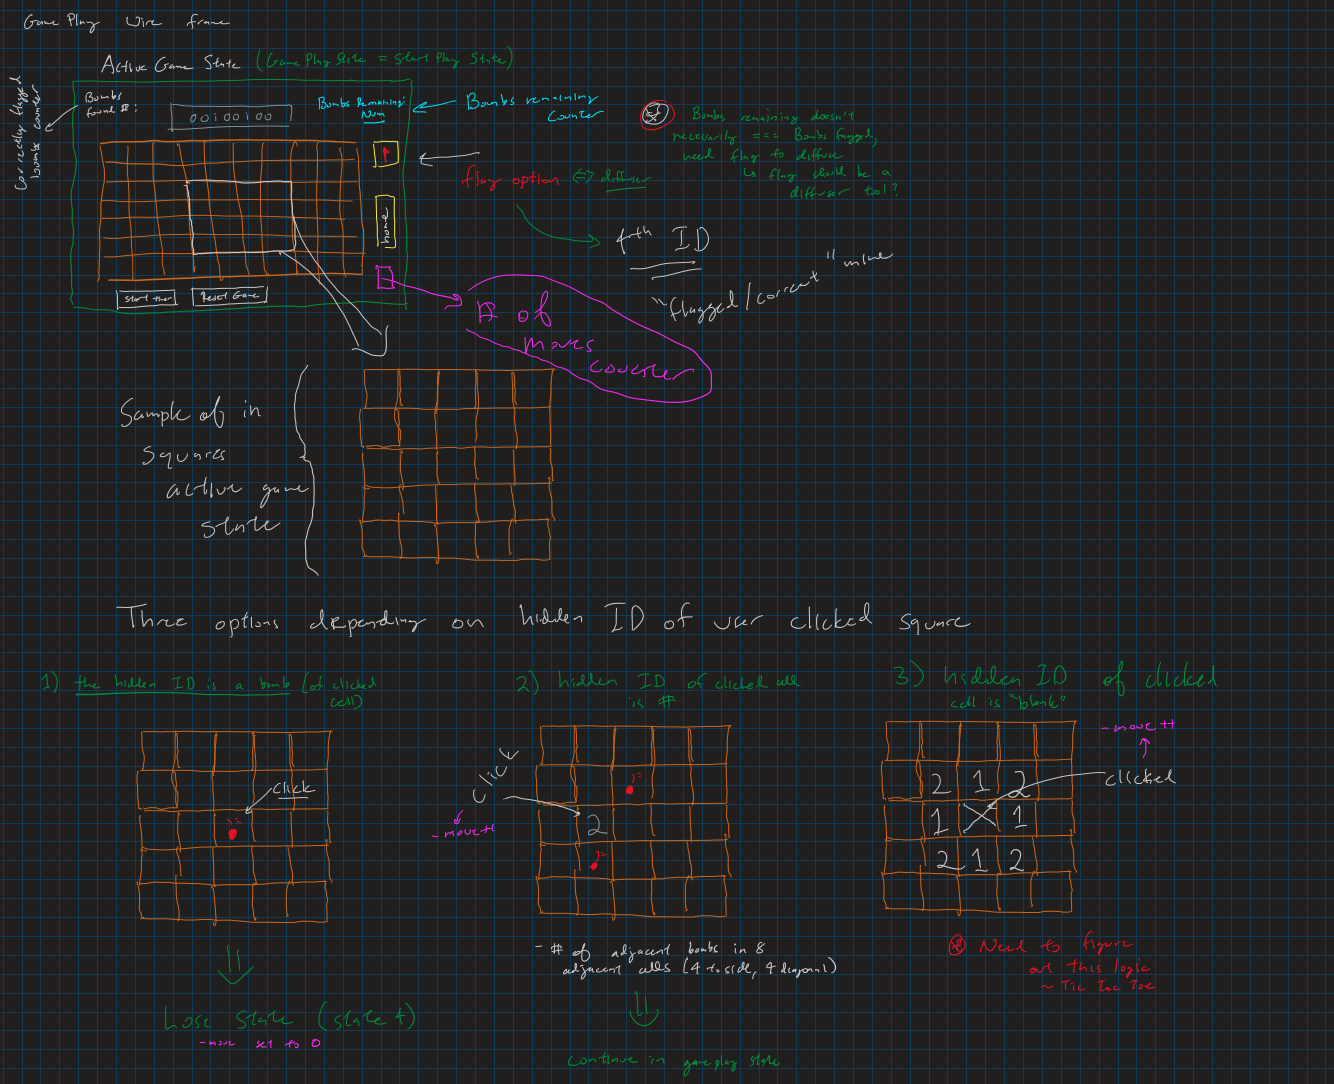 Game Play Wire frame
Active Game State (Game Play State = Start Play State)
Correctly flagged
bombs counter
Bombs
found #:
00100100
Bombs Remaining
Num
Bombs remaining
Counter
Bombs remaining doesn't
necessarily === Bombs flagged,
need flag to diffuse
↳ flag should be a
diffuser tool?
flag option <=> diffuser
home
4th ID
"flagged/correct" mine
Start Over
Reset Game
# of
moves
counter
Sample of in
squares
active game
state
Three options depending on hidden ID of user clicked square
1) the hidden ID is a bomb (of clicked
cell)
click
Lose State (state 4)
- move set to 0
2) hidden ID of clicked cell
is #
click
- move++
2
- # of adjacent bombs in 8
adjacent cells (4 to side, 4 diagonal)
Continue in gameplay state
3) hidden ID of clicked
cell is "blank"
- move ++
clicked
2 1 2
1 X 1
2 1 2
Need to figure
out this logic
~ Tic Tac Toe